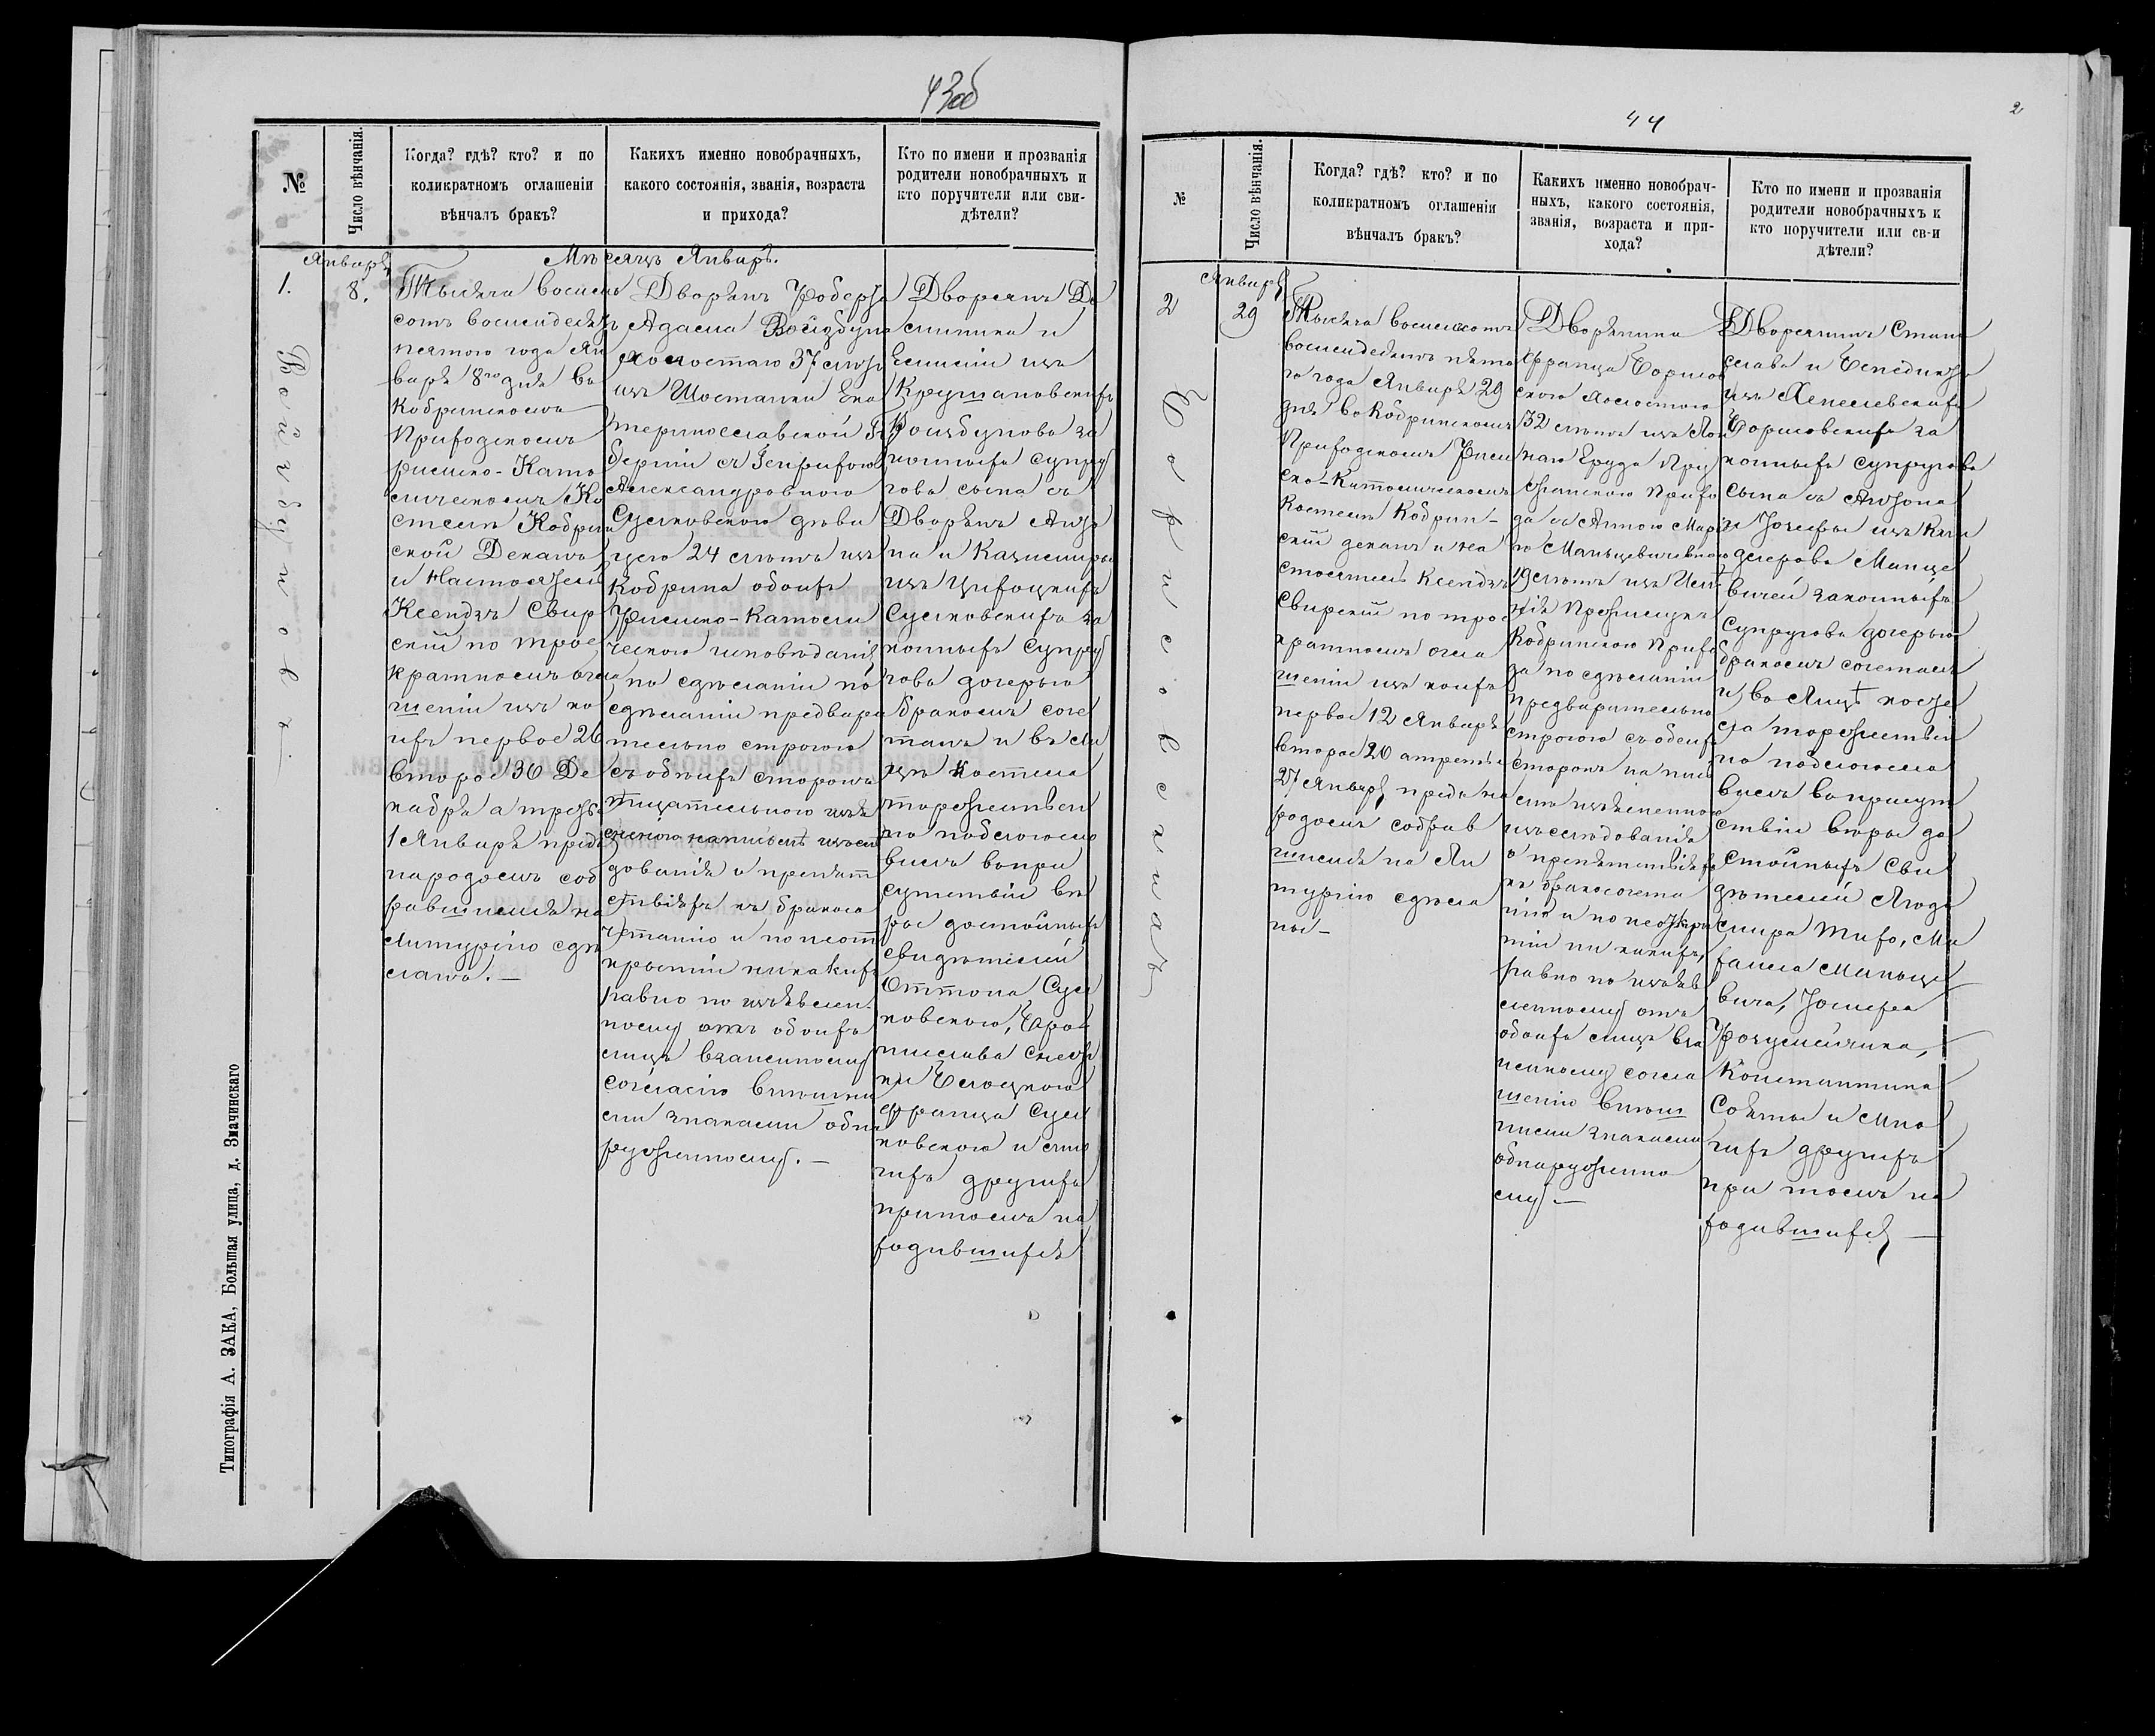 43об
№
Число вѣнчанія.
Когда? гдѣ? кто? и по
коликратномъ оглашеніи
вѣнчалъ бракъ?
Какихъ именно новобрачныхъ,
какого состоянія, званія, возраста
и прихода?
Кто по имени и прозванія
родители новобрачныхъ и
кто поручители или сви-
дѣтели?
Мѣсяцъ Январь.
1.
Январь
8.
Тысяча восемь
сотъ восемдесят
пятого года Ян
варя 8го дня въ
Кобринскомъ
Приходскомъ
римско-Като
лическомъ Ко
стелѣ Кобрин
ской Деканъ
и Настоятель
Ксендзъ Свир
скій по трое
кратномъ огла
шеніи изъ ко
ихъ первое 26
второе 30 Де
кабря а третье
1 Января предъ
народомъ соб
равшимся на
литургію сдѣ
лано.—
Дворянъ Роберта
Адама Войзбуна
холостаго 37 лѣтъ
изъ Шостаки Ека
теринославской Гу
берніи съ Генрихою
Александровною
Сулковскою дѣви
цею 24 лѣтъ изъ
Кобрина обоихъ
Римско-Католи
ческого исповѣданія
по сдѣланіи по
сдѣланіи предвари
тельно строгого
съ обѣихъ сторонъ
тщательного
дованія о препят
ствіяхъ къ бракосо
четанію и по неот
крытіи никакихъ
равно по изъявлен
ному отъ обоихъ
лицъ взаимному
согласію внѣшни
ми знаками обна
руженному.—
Дворянъ До
миника и
Емиліи изъ
Крушановскихъ
Воизбуновъ за
конныхъ супру
говъ сына съ
Дворянъ Анто
на и Казимиры
изъ Цивоцкихъ
Сулковскихъ за
конныхъ супру
говъ дочерью
бракомъ соче
талъ и въ ли
цѣ Костела
торжествен
но поблагосло
вилъ въ при
сутствіи вѣ
рое достойныхъ
свидѣтелей
Оттона Сул
ковского, Бро
нислава
Белоцкого
Франца Сул
ковского и мно
гихъ другихъ
притомъ на
ходившихся
Войзбуновъ
Типографія А. ЗАКА, Большая улица, д. Значинскаго
44
2
№
Число вѣнчанія.
Когда? гдѣ? кто? и по
коликратномъ оглашеніи
вѣнчалъ бракъ?
Какихъ именно новобрач-
ныхъ, какого состоянія,
званія, возраста и при-
хода?
Кто по имени и прозванія
родители новобрачныхъ и
кто поручители или св-и
дѣтели?
2
Январь
29
Тысяча восемьсотъ
восемдесятъ пято
го года Января 29
дня въ Кобринскомъ
Приходскомъ Рим
ско-Католическомъ
Костелѣ Кобрин-
скій деканъ и на
стоятель Ксендзъ
Свирскій по трое
кратномъ огла
шеніи изъ коихъ
первое 12 Января
второе 20 а третье
27 Января предъ на
родомъ собрав
шимся на Ли
тургію сдѣла
ны—
Дворянина
Франца Борисов
ского холостого
32 лѣтъ изъ
Пру
жанского Прихо
да съ Анною Марі
ею Маньцевичевною
19 лѣтъ изъ
Кобринского Прихо
да по сдѣланіи
предварительно
строгого съ обоихъ
сторонъ на
изслѣдованія
о препятствіяхъ
къ бракосочета
нію и по неоткры
тіи ни какихъ,
равно по изъяв
ленному отъ
обоихъ лицъ вза
имному согла
шенію внѣш
ними знаками
обнаруженно
му—
Дворянинъ Стани
слава и Бенедикты
изъ Хенелевскихъ
Борисовскихъ за
конныхъ супруговъ
сына съ Антона
и Іозефы изъ
Манце
вичей законныхъ
супруговъ дочерью
бракомъ сочеталъ
и въ Лицѣ косте
ла торжествен
но поблагосло
вилъ въ присут
ствіи вѣры до
стойныхъ Сви
дѣтелей Люд
мира Тихо, Ми
хаила Маньце
вича, Іосифа
Константина
Сояты и Мно
гихъ другихъ
при томъ на
ходившихся—
Борисовская